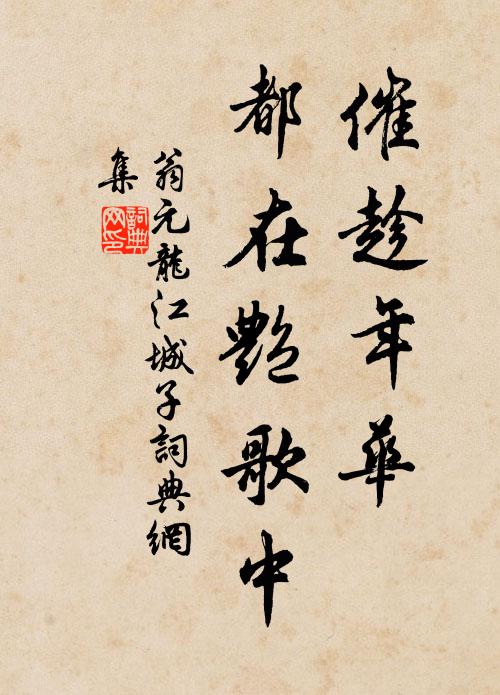 催趁年華
都在艷歌中
翁元龍江城子詞典網
集
詞典
网印